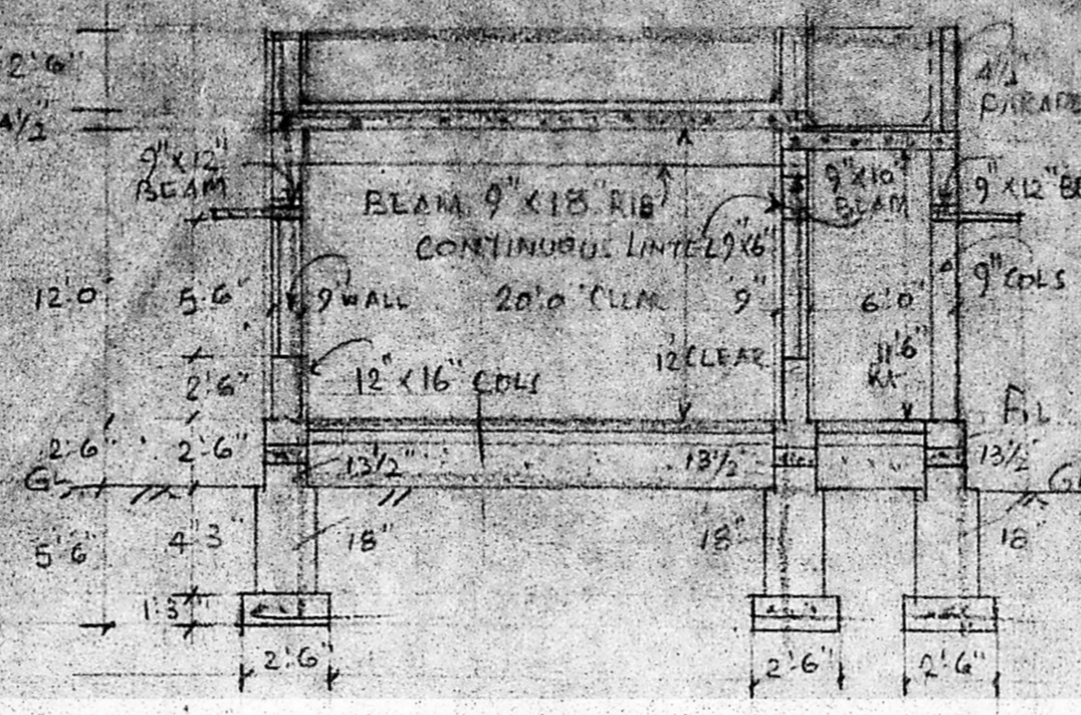 2'6"
4½"
4½"
9"X12"
BEAM
BEAM 9"X18" RIB
CONTINUOUS LINTEL 9"X6"
9"X10"
BEAM
9"X12"
12'0"
5'6"
9" WALL
20'0" CLEAR
9"
6'0"
9" COLS
2'6"
12"X16" COLS
12' CLEAR
11'6"
2'6"
2'6"
13½"
13½"
13½"
GL
5'6"
4'3"
18"
18"
18
1'3"
2'6"
2'6"
2'6"